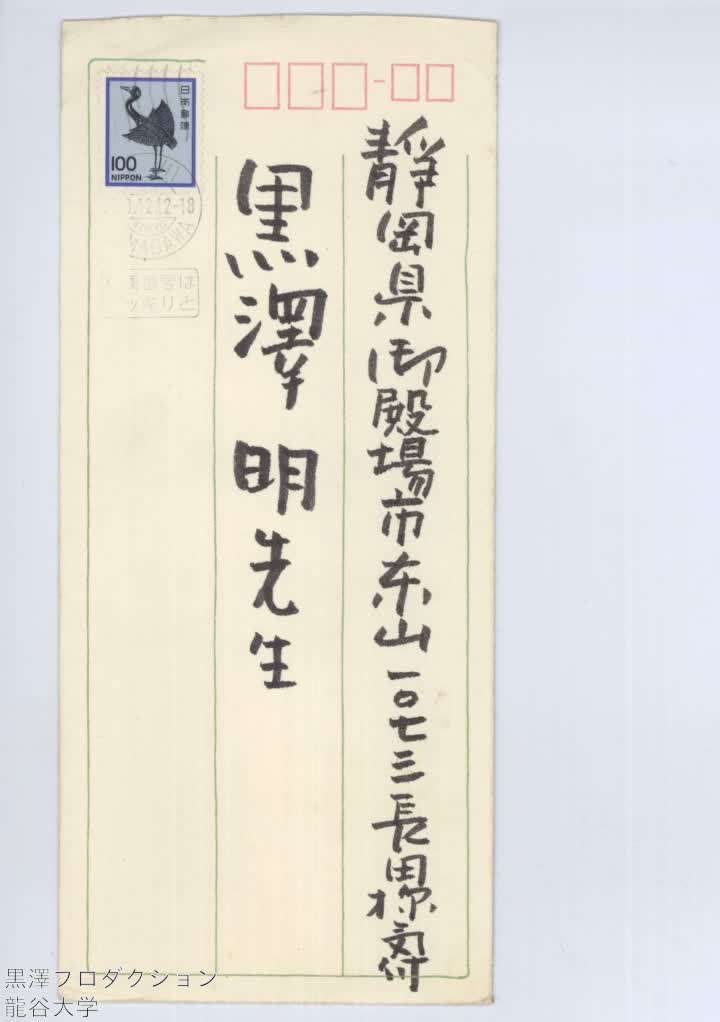 静岡県御殿場市东山一〇七三長田様気付
黒澤明先生
日本郵便
100
NIPPON
12.12-18
TOKYO
は
とりキッ
黒澤プロダクション
龍谷大学